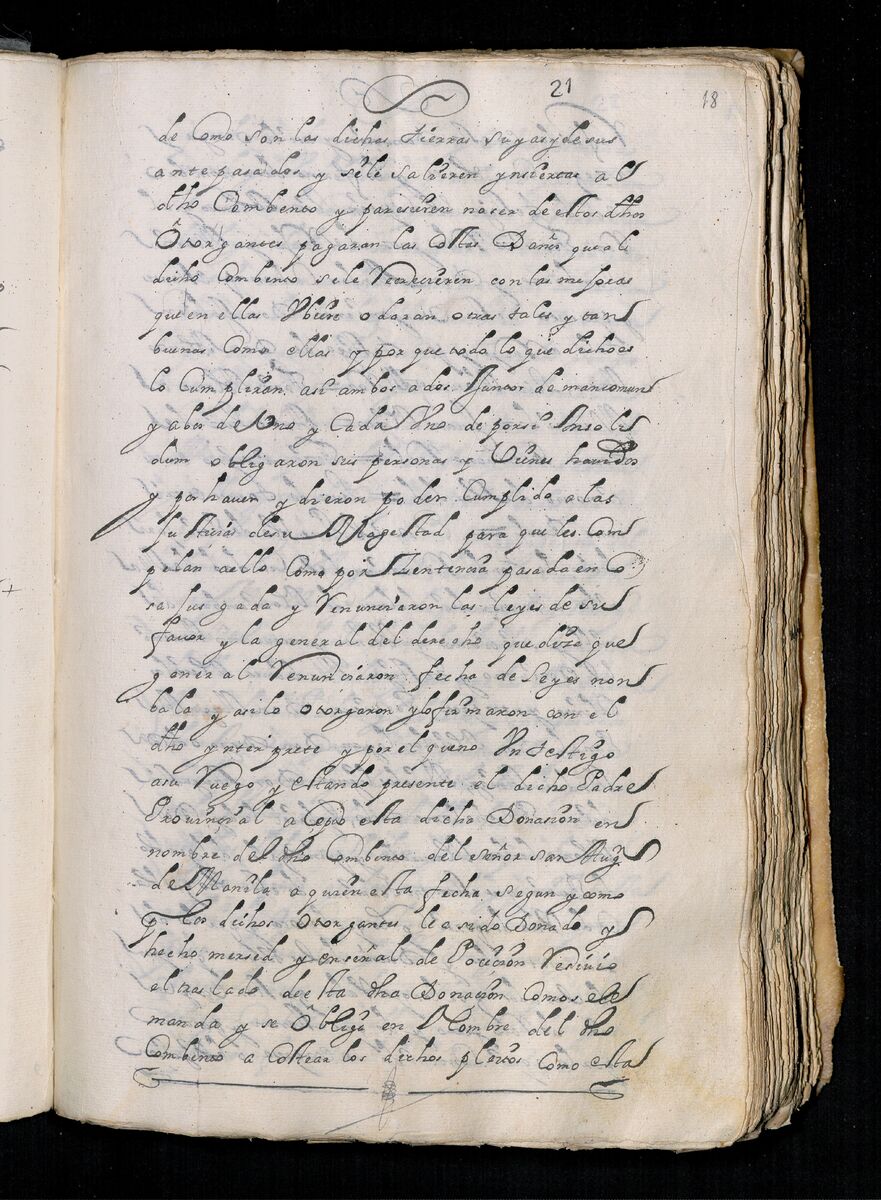 21
18
de Como son las dichas tierras suyas y de sus
antepasados y sele salieren ynsiertas a el
dho Combento y paresieren no ser de estos dhos
Otorgantes pagaran las costas Daños que al
dicho Combento sele Recrecieren con las mejoras
que en ellas Vbiere o daran otras tales y tan
buenas Como ellas y por que todo lo que dicho es
lo Cumpliran asi ambos a dos Juntos de mancomun
y a bos de Vno y Cada Vno de por si Insoli
dum obligaron sus personas y Vienes havidos
y por haver y dieron poder Cumplido a las
Justicias de su Magestad para que les Com
pelan a ello Como por Zentencia pasada en Co
sa Jusgada y Renunciaron las leyes de su
favor y la general del derecho que dize que
general Renunciaron fecha de leyes non
bala y asi lo otorgaron y lo firmaron con el
dho ynterprete y por el que no Vn testigo
a su Ruego y estando presente el dicho Padre
Provincial a Cepto esta dicha Donasion en
nombre del dho Combento del señor san Aug
de Manila a quien esta fecha segun y como
por los dichos Otorgantes le a sido Donado y
hecho mersed y en señal de Pocecion Resivio
el traslado de esta dha Donasion Como se le
manda y se Obligo en Nombre del dho
Combento a Costear los dichos pleitos Como esta